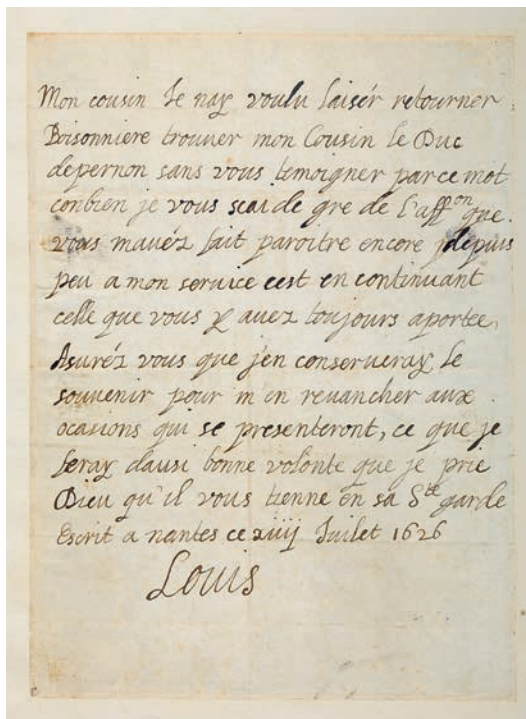 Mon cousin Je nay voulu laisér retourner
Boisonniere trouver mon Cousin le Duc
depernon sans vous temoigner par ce mot
conbien je vous scai de gre de l'affon que
vous mavéz fait paroitre encore depuis
peu a mon service cest en continuant
celle que vous y avez toujours aportee,
Asuréz vous que j'en conserveray le
souvenir pour m'en revancher aux
ocasions qui se presenteront, ce que je
feray dausi bonne volonte que je prie
Dieu qu'il vous tienne en sa Ste garde
Escrit a nantes ce xiiij Juilet 1626
Louis